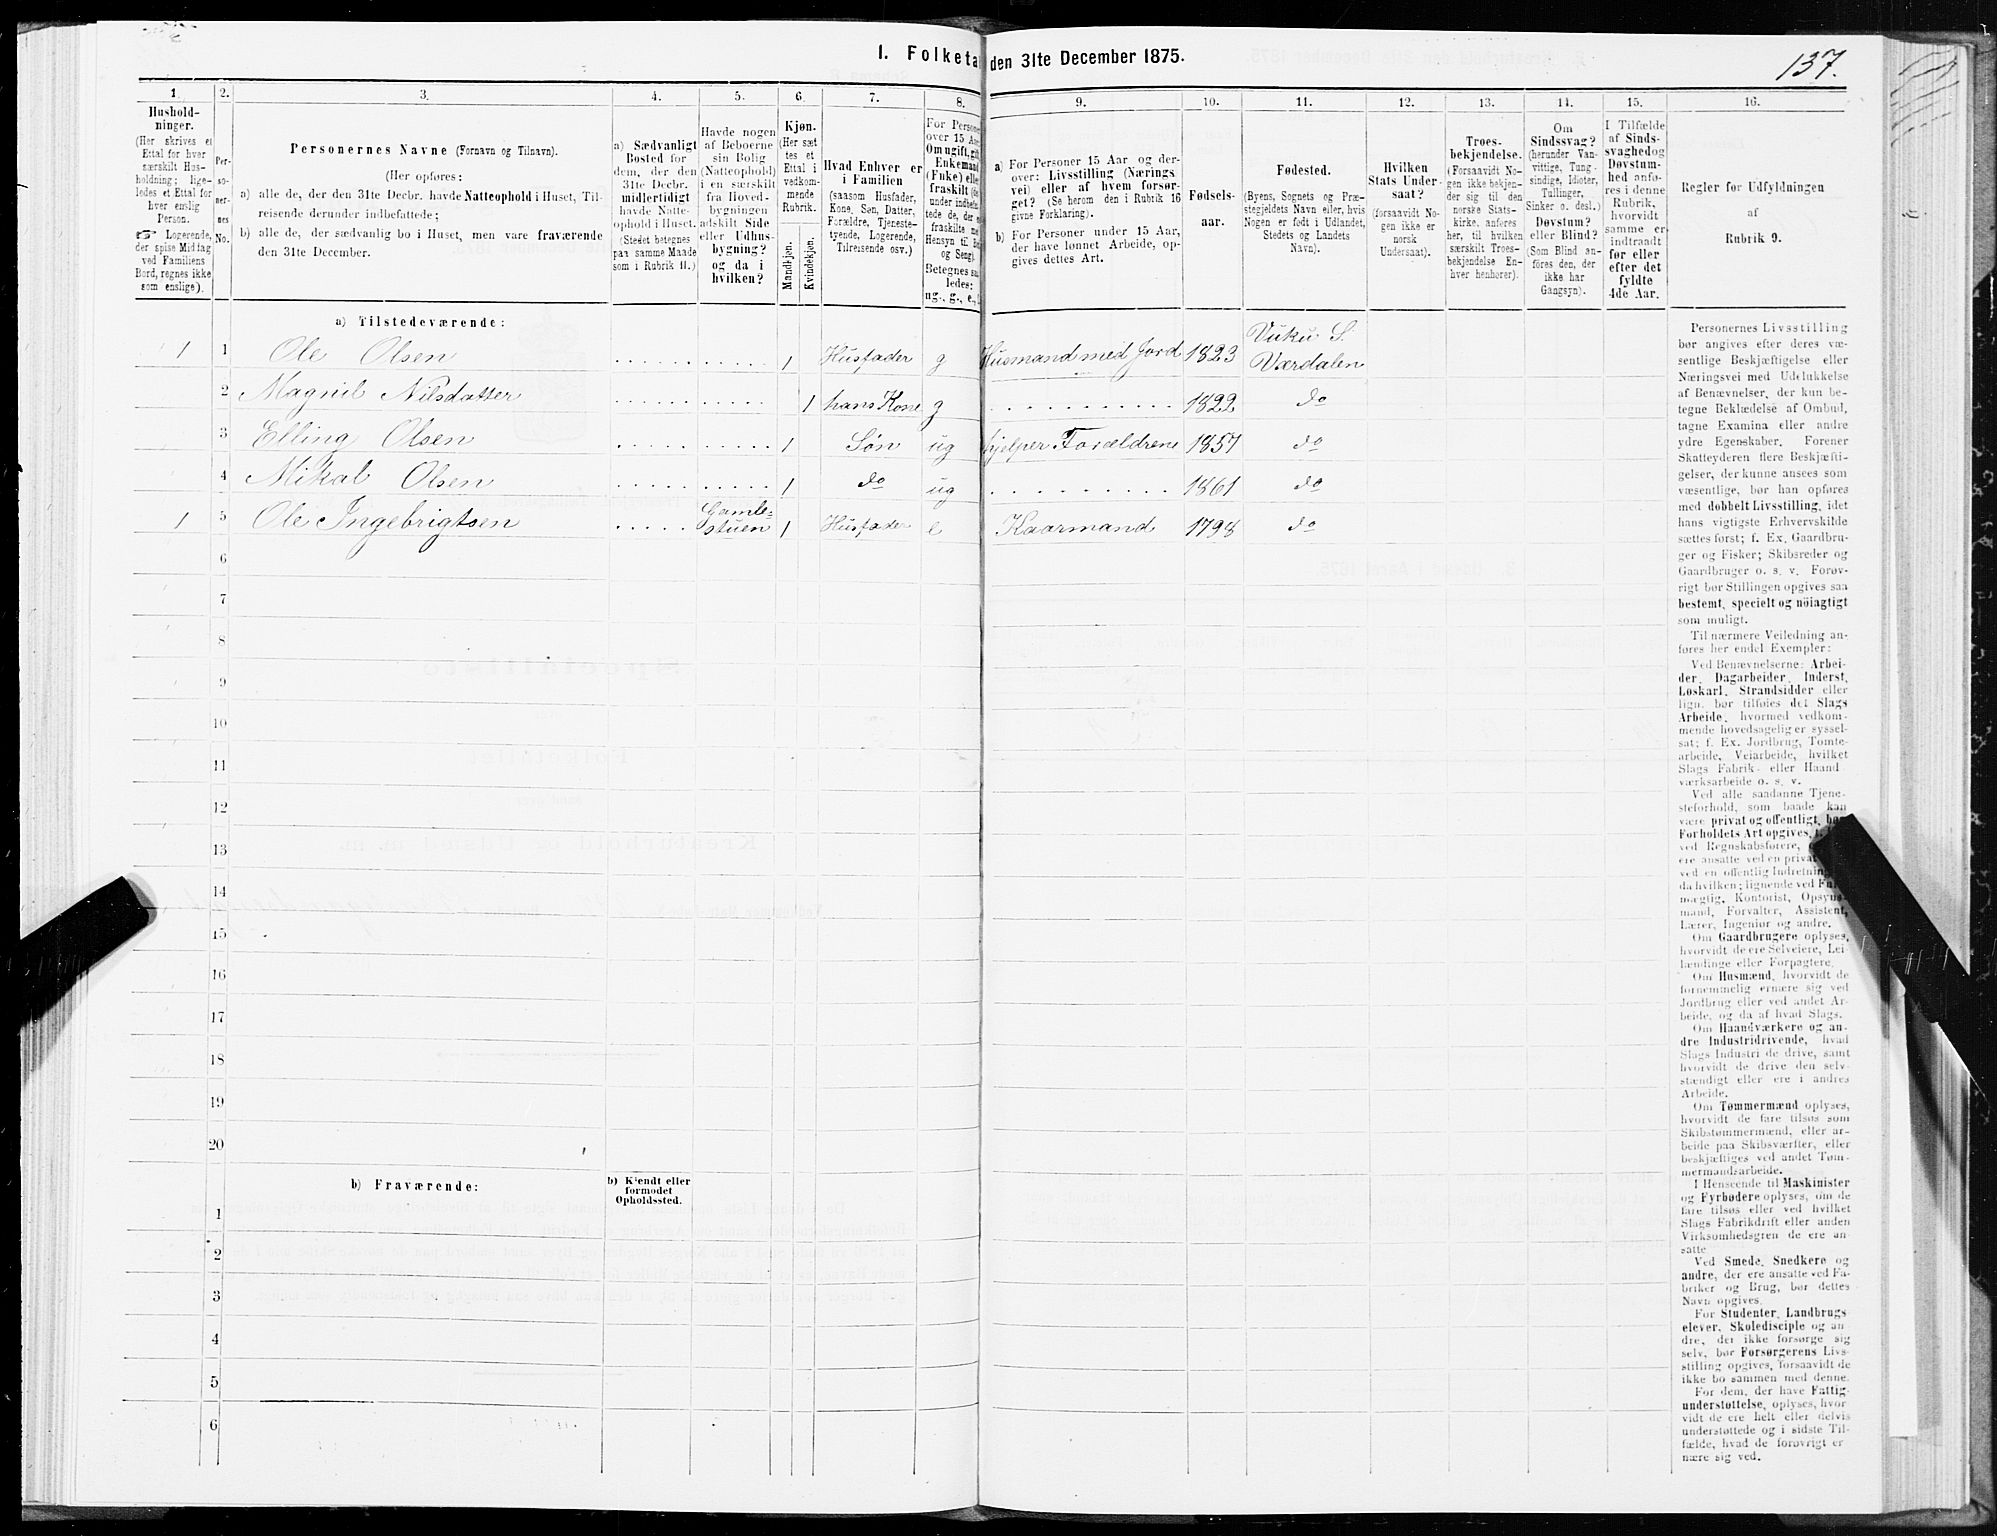 1. Folketa den 31te December 1875.
137.
1. 2. 3. 4. 5. 6. 7. 8. 9. 10. 11. 12. 13. 14. 15. 16.
Hushold-
ninger.
(Her skrives et
Ettal for hver
særskilt Hus-
holdning; lige-
ledes et Ettal for
hver enslig
Person.
Logerende,
der spise Middag
ved Familiens
Bord, regnes ikke
som enslige).
Per-
so-
ner-
nes
No.
Personernes Navne (Fornavn og Tilnavn).
(Her opføres:
a) alle de, der den 31te Decbr. havde Natteophold i Huset, Til-
reisende derunder indbefattede;
b) alle de, der sædvanlig bo i Huset, men vare fraværende
den 31te December.
a) Sædvanligt
Bosted for
dem, der den
31te Decbr.
midlertidigt
havde Natte-
ophold i Huset.
(Stedet betegnes
paa samme Maade
som i Rubrik 11.)
Havde nogen
af Beboerne
sin Bolig
(Natteophold)
i en særskilt
fra Hoved-
bygningen
adskilt Side
eller Udhus-
bygning?
og da i
hvilken?
Kjøn.
(Her sæt
tes et
Ettal i
vedkom-
mende
Rubrik.
Mandkjøn.
Kvindekjøn.
Hvad Enhver er
i Familien
(saasom Husfader,
Kone, Søn, Datter,
Forældre, Tjeneste-
tyende, Logerende,
Tilreisende osv.)
For Persone
over 15 Aa
Om ugift, gif
Enkemand
(Enke) elle
fraskilt
under indbefa
tede de, der
fraskilte
Hensyn til Bo
og Seng).
Betegnes saa
ledes:
ug., g., e.,
a) For Personer 15 Aar og der-
over: Livsstilling (Nærings
vei) eller af hvem forsør-
get? (Se herom den i Rubrik 16
givne Forklaring).
b) For Personer under 15 Aar,
der have lønnet Arbeide, op-
gives dettes Art.
Fødsels-
aar.
Fødested.
(Byens, Sognets og Præ-
stegjeldets Navn eller, hvis
Nogen er født i Udlandet,
Stedets og Landets
Navn).
Hvilken
Stats Under-
saat?
(forsaavidt No-
gen ikke er
norsk
Undersaat).
Troes-
bekjendelse.
(Forsaavidt No-
gen ikke bekjen-
der sig til den
norske Stats-
kirke, anføres
her, til hvilken
særskilt Troes-
bekjendelse En-
hver henhører).
Om
Sindssvag?
(herunder Van-
vittige, Tung-
sindige, Idioter,
Tullinger,
Sinker o. desl.)
Døvstum?
eller Blind?
(Som Blind an-
føres den, der
ikke har
Gangsyn).
I Tilfælde
af Sinds-
svaghed og
Døvstum-
hed anfø-
res i denne
Rubrik,
hvorvidt
samme er
indtraadt
før eller
efter det
fyldte
4de Aar.
Regler for Udfyldningen
af
Rubrik 9.
a) Tilstedeværende:
1 1 Ole Olsen 1 Husfader g Husmand med Jord 1823 Vuku S. Værdalen
2 Magnil Nilsdatter 1 hans Kone g 1822 do
3 Elling Olsen 1 Søn ug hjelper Forældrene 1857 do
4 Mikal Olsen 1 do ug 1861 do
1 5 Ole Ingebrigtsen Gamle-stuen 1 Husfader e Kaarmand 1798 do
6
7
8
9
10
11
12
13
14
15
16
17
18
19
20
b) Fraværende:
b) Kjendt eller
formodet
Opholdssted.
1
2
3
4
5
6
Personernes Livsstilling
bør angives efter deres væ-
sentlige Beskjæftigelse eller
Næringsvei med Udelukkelse
af Benævnelser, der kun be-
tegne Beklædelse af Ombud,
tagne Examina eller andre
ydre Egenskaber. Forener
Skatteyderen flere Beskjæfti-
gelser, der kunne ansees som
væsentlige, bør han opføres
med dobbelt Livsstilling, idet
hans vigtigste Erhvervskilde
sættes først; f. Ex. Gaardbru-
ger og Fisker; Skibsreder og
Gaardbruger o. s. v. Forøv-
rigt bør Stillingen opgives saa
bestemt, specielt og nöiagtigt
som muligt.
Til nærmere Veiledning an-
føres her endel Exempler:
Ved Benævnelserne: Arbei-
der, Dagarbeider, Inderst,
Løskarl, Strandsidder eller
lign. bør tilføies det Slags
Arbeide, hvormed vedkom-
mende hovedsagelig er syssel-
sat; f. Ex. Jordbrug, Tomte-
arbeide, Veiarbeide, hvilket
Slags Fabrik- eller Haand
værksarbeide o. s. v.
Ved alle saadanne Tjene-
steforhold, som baade kan
være privat og offentligt, bør
Forholdets Art opgives,
ved Regnskabsførere,
ere ansatte ved en privat
ved en offentlig Indretning
da hvilken; lignende ved
mægtig, Kontorist, Opsyns-
mand, Forvalter, Assistent,
Lærer, Ingeniør og andre.
Om Gaardbrugere oplyses,
hvorvidt de ere Selveiere, Lei-
lændinge eller Forpagtere.
Om Husmænd, hvorvidt de
fornemmelig ernære sig ved
Jordbrug eller ved andet Ar-
beide, og da af hvad Slags.
Om Haandværkere og an-
dre Industridrivende, hvad
Slags Industri de drive, samt
hvorvidt de drive den selv-
stændigt eller ere i andres
Arbeide.
Om Tømmermænd oplyses,
hvorvidt de fare tilsøs som
Skibstømmermænd, eller ar-
beide paa Skibsværfter, eller
beskjæftiges ved andet Tøm-
mermandsarbeide.
I Henseende til Maskinister
og Fyrbødere oplyses, om de
fare tilsøs eller ved hvilket
Slags Fabrikdrift eller anden
Virksomhedsgren de ere an-
satte
Ved Smede, Snedkere og
andre, der ere ansatte ved Fa-
briker og Brug, bør dettes
Navn opgives.
For Studenter, Landbrugs
elever, Skoledisciple og an-
dre, der ikke forsørge sig
selv, bør Forsørgerens Livs-
stilling opgives, forsaavidt de
ikke bo sammen med denne.
For dem, der have Fattig-
understøttelse, oplyses, hvor-
vidt de ere helt eller delvis
understøttede og i sidste Til-
fælde, hvad de forøvrigt er
nære sig ved.